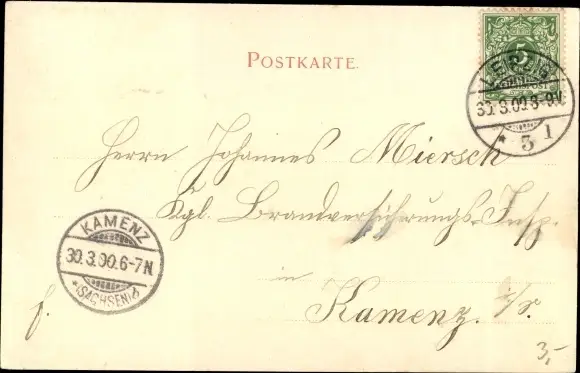 POSTKARTE
5
LEIPZIG
30.3.00.8-9V.
* 3 1
Herrn Johannes Miersch
Kgl. Brandversicherungs-Insp.
in
Kamenz i/S.
KAMENZ
30.3.00.6-7N.
*(SACHSEN)
f.
3,-